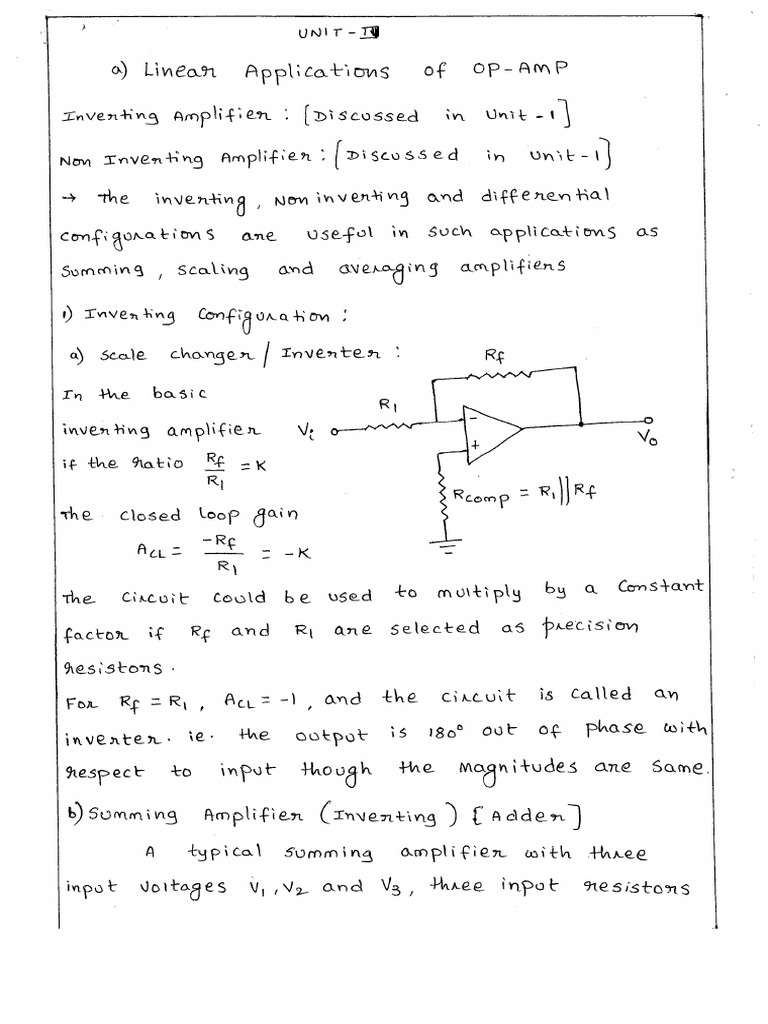 UNIT - IV
a) Linear Applications of OP-AMP
Inverting Amplifier : [Discussed in Unit - 1]
Non Inverting Amplifier : [Discussed in Unit - 1]
→ The inverting, Non inverting and differential
configurations are useful in such applications as
summing, scaling and averaging amplifiers
1) Inverting Configuration :
a) Scale changer / Inverter :
In the basic
inverting amplifier
if the ratio Rf/R1 = K
The closed loop gain
ACL = -Rf/R1 = -K
Rf
R1
Vi
-
+
Vo
Rcomp = R1||Rf
The circuit could be used to multiply by a constant
factor if Rf and R1 are selected as precision
resistors.
For Rf = R1, ACL = -1, and the circuit is called an
inverter. ie. the output is 180° out of phase with
respect to input though the magnitudes are same.
b) Summing Amplifier (Inverting) [Adder]
A typical summing amplifier with three
input voltages V1, V2 and V3, three input resistors